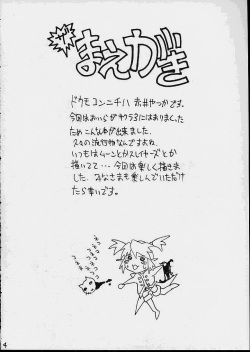 ザ まえがき
ドウモコンニチハ 赤井やつかです。
今回はおいらがサクラ3にはまりまくった
ためこんな本が出来ました。
久々の流行物なんですよね。
いつもはムーンとかスレイヤーズとか
描いてて・・・今回も楽しく描きま
した。みなさまも楽しんでいただけ
たら幸いです。
4